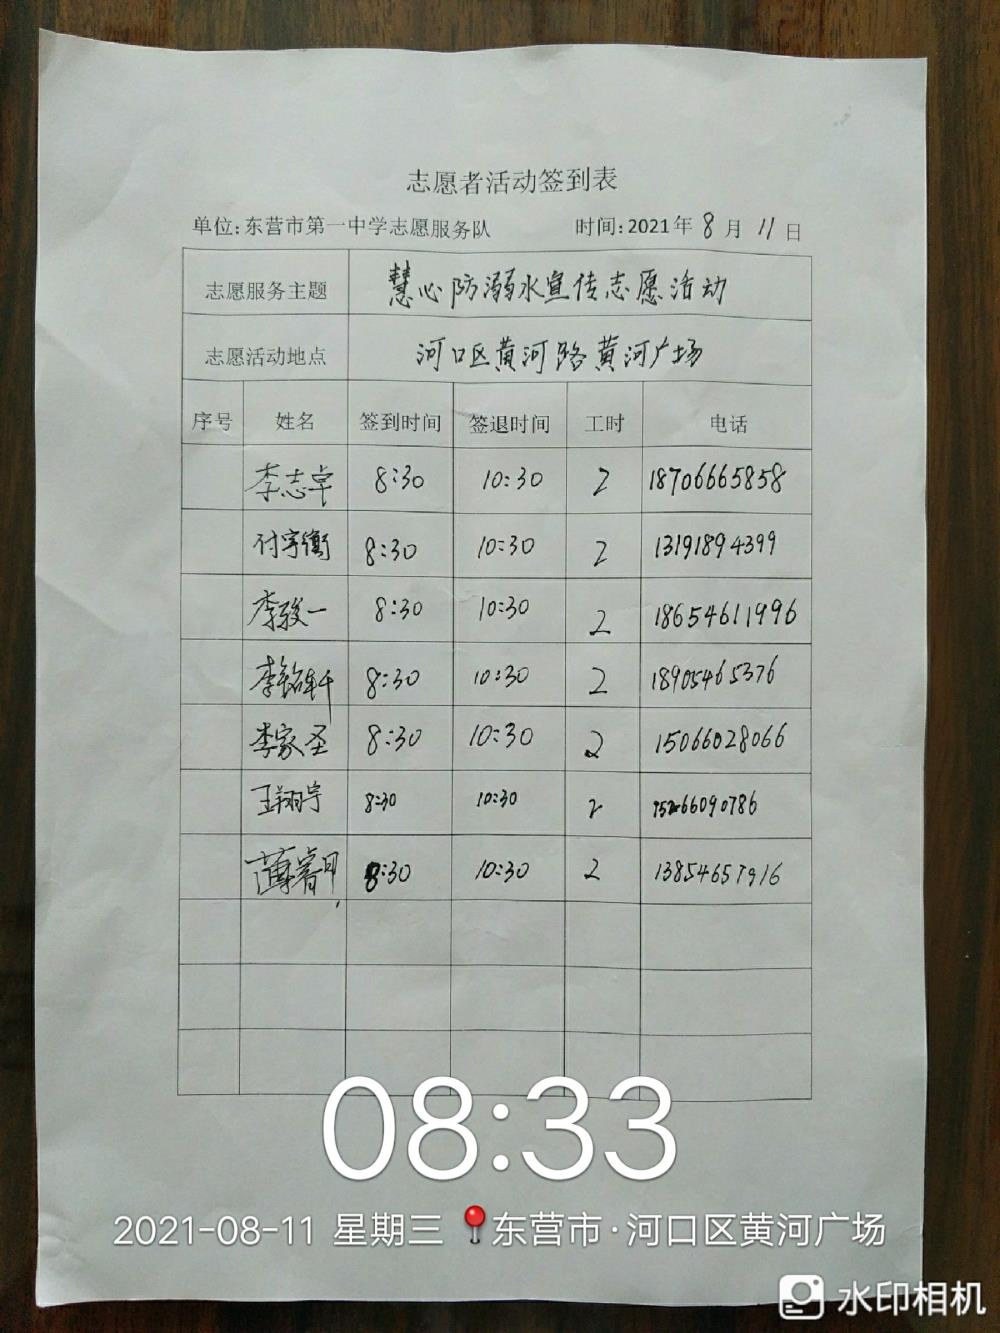 志愿者活动签到表
单位:东营市第一中学志愿服务队 时间:2021年8月11日
志愿服务主题 慧心防溺水宣传志愿活动
志愿活动地点 河口区黄河路黄河广场
序号 姓名 签到时间 签退时间 工时 电话
李志卓 8:30 10:30 2 18706665858
付宇衡 8:30 10:30 2 13191894399
李骏一 8:30 10:30 2 18654611996
李铭轩 8:30 10:30 2 18905465376
李家圣 8:30 10:30 2 15066028066
王翔宇 8:30 10:30 2
薄睿 8:30 10:30 2 13854657916
08:33
2021-08-11 星期三 东营市·河口区黄河广场
水印相机